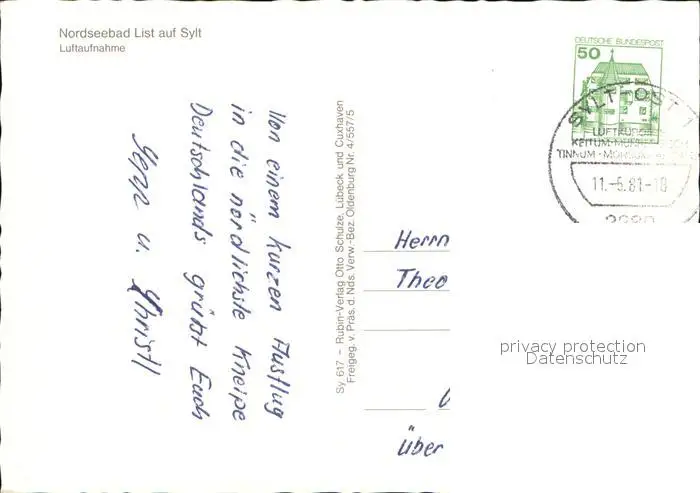 Nordseebad List auf Sylt
Luftaufnahme
Von einem kurzen Ausflug
in die nördlichste Kneipe
Deutschlands grüßt Euch
Sepp u. Christl
Sy 617 – Rubin-Verlag Otto Schulze, Lübeck und Cuxhaven
Freigeg. v. Präs. d. Nds. Verw.-Bez. Oldenburg Nr. 4/557/5
DEUTSCHE BUNDESPOST
50
SYLT-OST 1
LUFTKURORT
KEITUM
TINNUM
11.-6.81.-18
2280
Herrn
Theo
über
privacy protection
Datenschutz